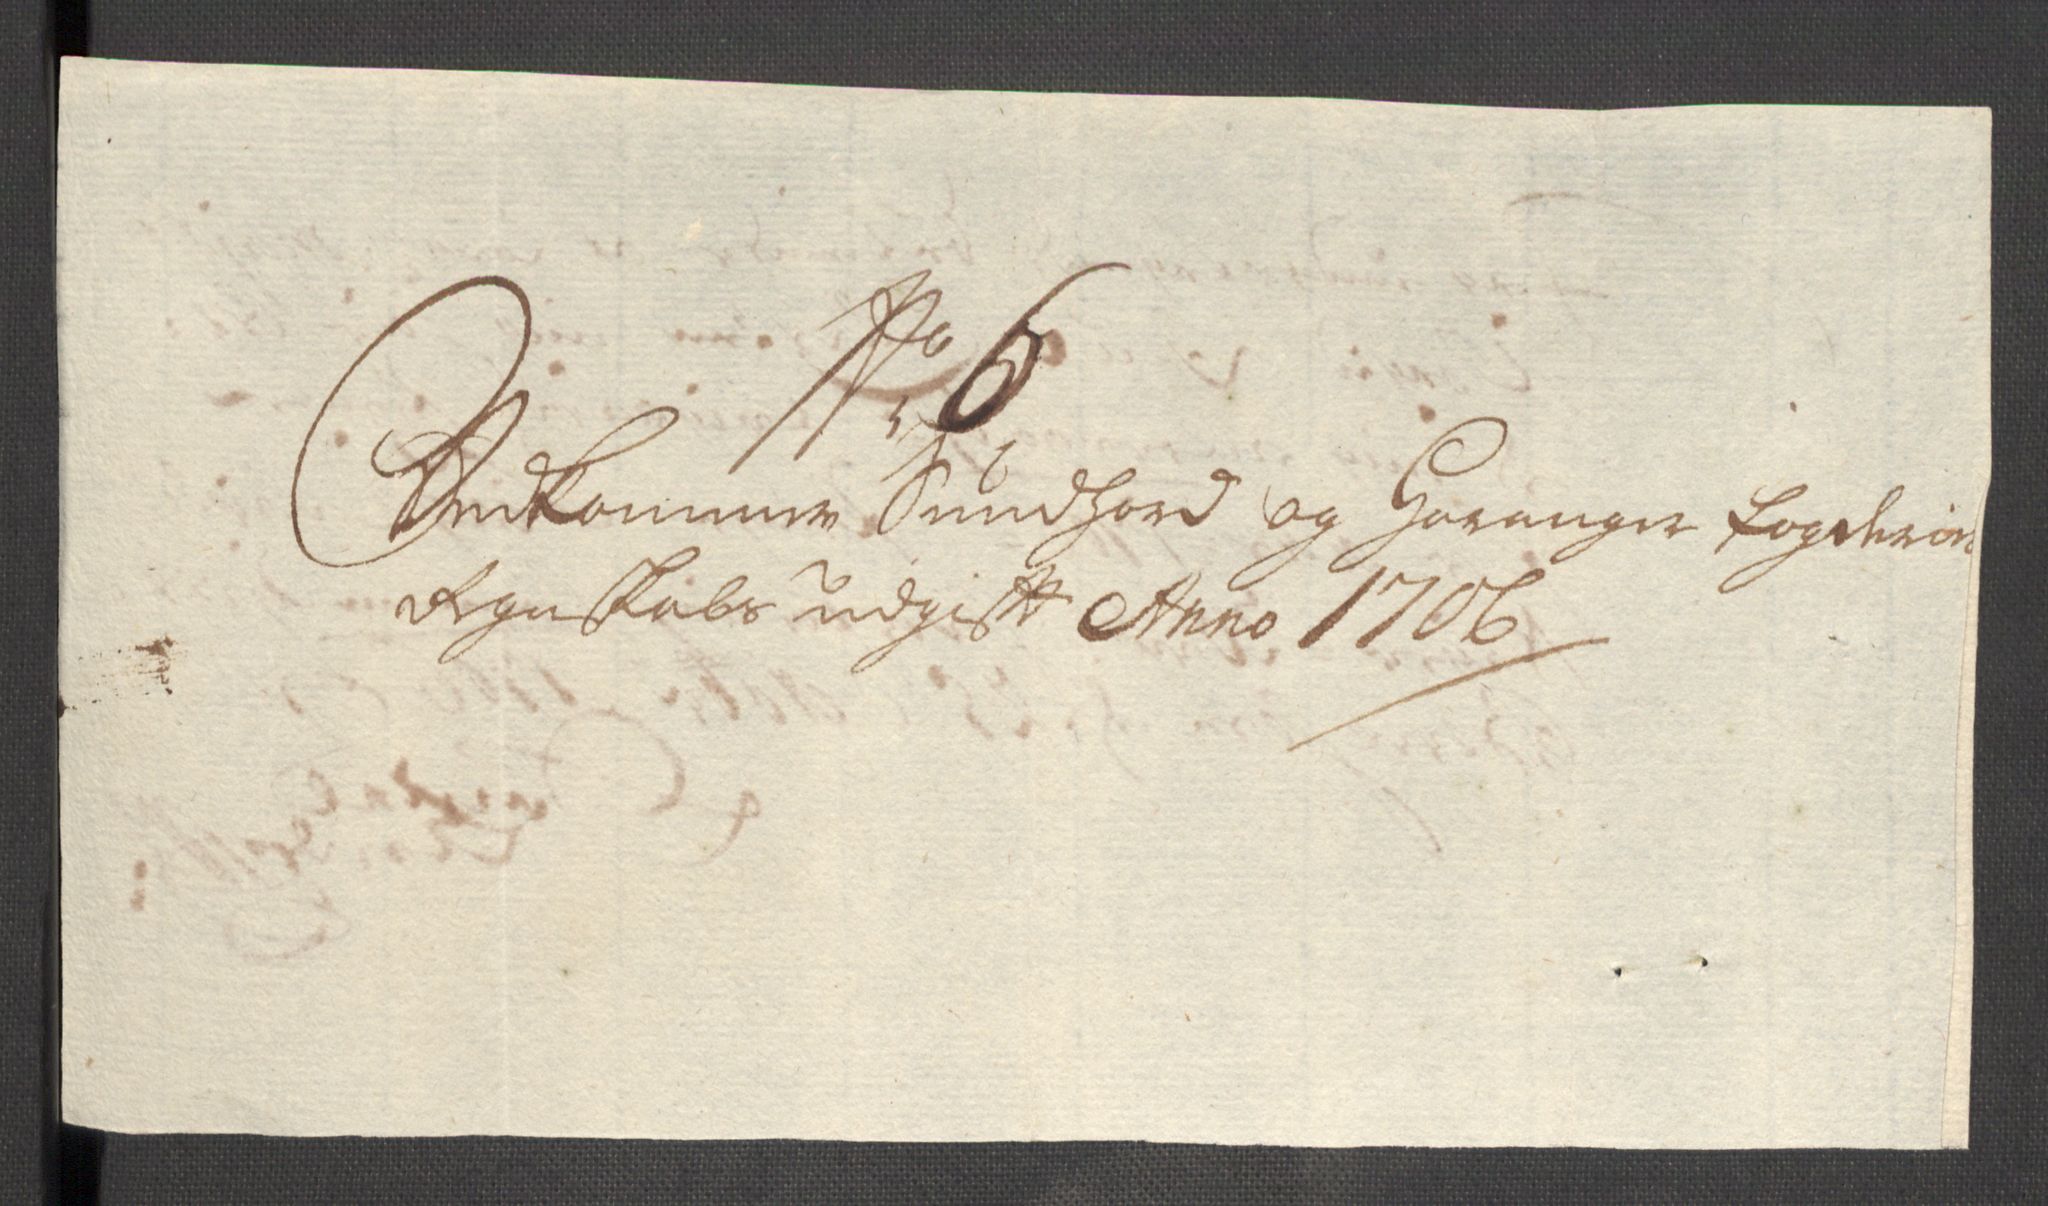 No 6
Vedkommer Sundhord og Haranger fogderies
Regnskabs udgift Anno 1706